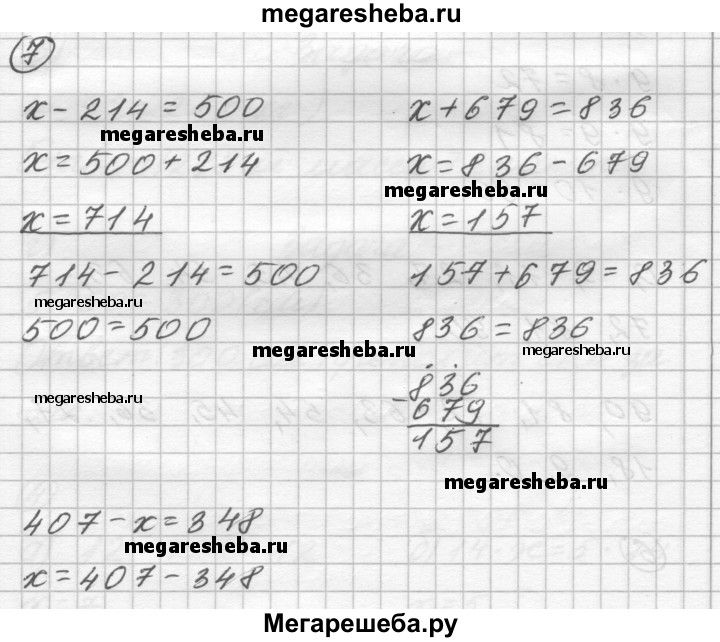 megaresheba.ru
7
x - 214 = 500
megaresheba.ru
x = 500 + 214
x = 714
714 - 214 = 500
megaresheba.ru
500 = 500
megaresheba.ru
x + 679 = 836
x = 836 - 679
megaresheba.ru
x = 157
157 + 679 = 836
836 = 836
megaresheba.ru
megaresheba.ru
836
- 679
157
megaresheba.ru
407 - x = 348
megaresheba.ru
x = 407 - 348
Мегарешеба.ру